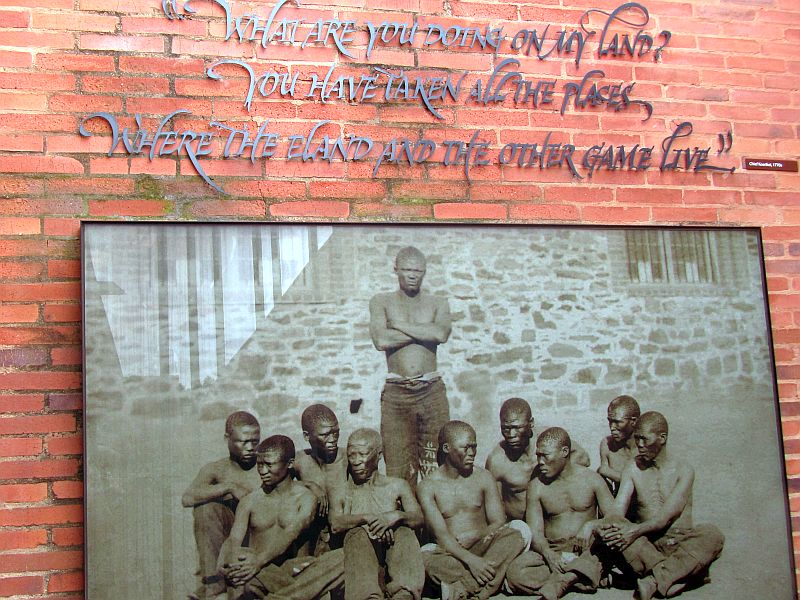 "What are you doing on my land?
You have taken all the places,
Where the eland and the other game live"
Chief Koerikei, 1770s